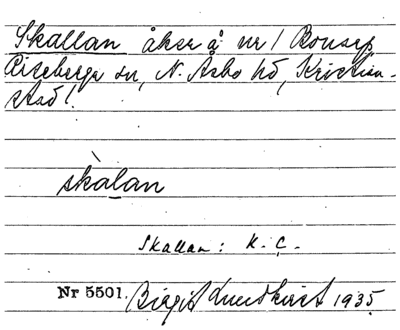 Skallan åker å nr 1 Bonarp
Riseberga sn, N. Åsbo hd, Kristian-
stad l.
skàlan
Skallan: K. C.
Nr 5501. Birgit Lundkvist 1935